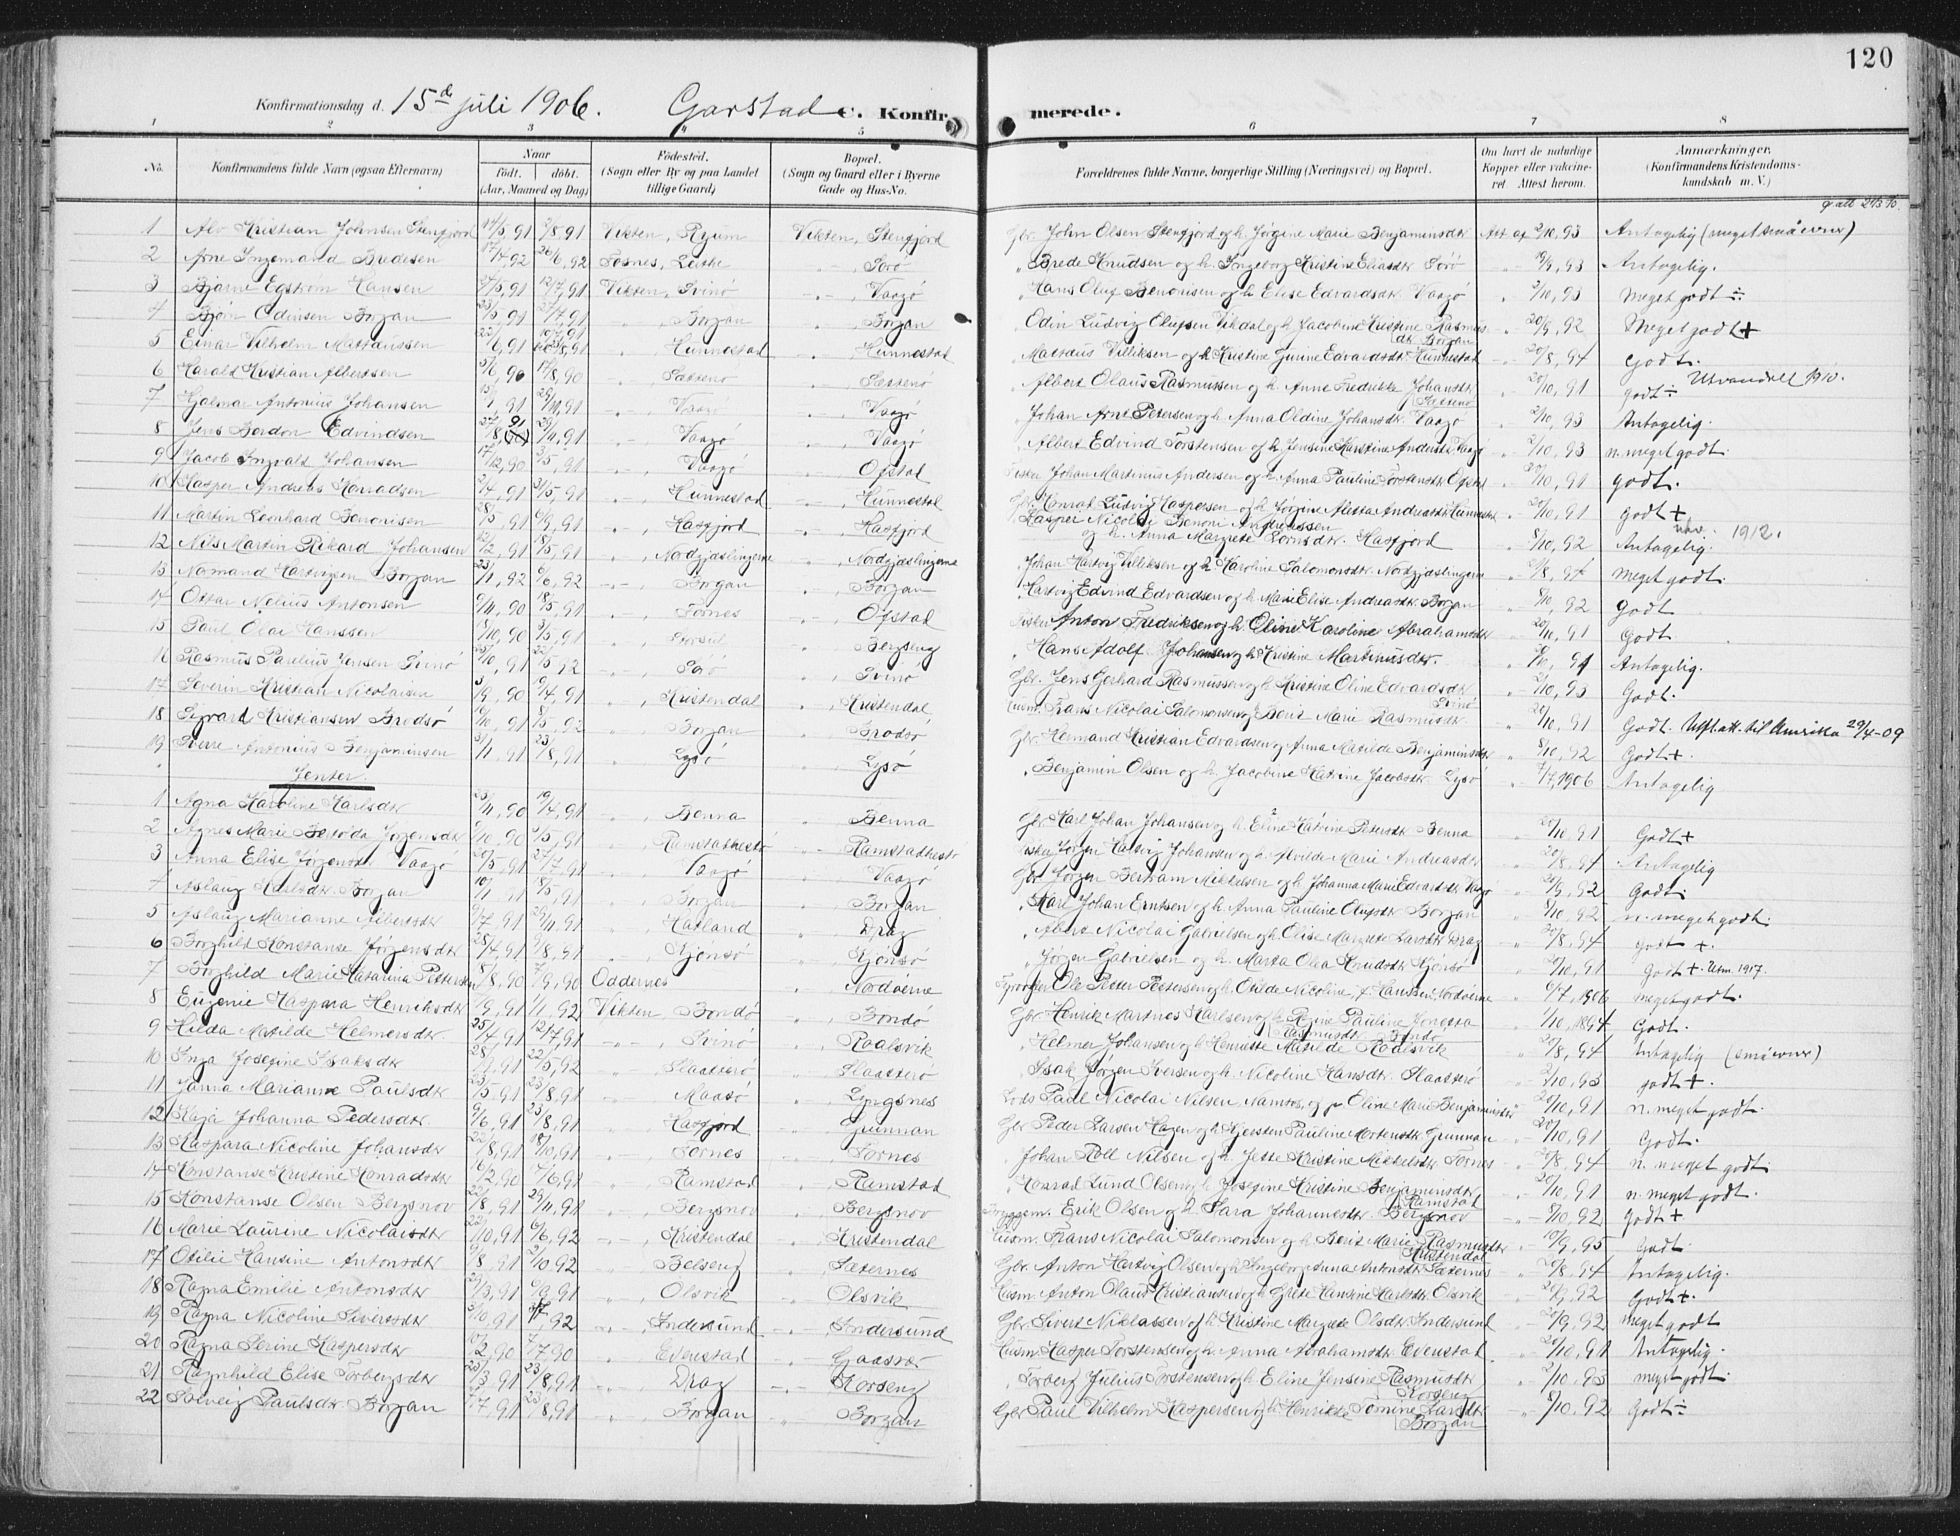 120
Konfirmationsdag d. 15de juli 1906. Garstad C. Konfirmerede.
1 2 3 4 5 6 7 8
No. Konfirmandens fulde Navn (ogsaa Efternavn) Naar født. døbt. (Aar, Maaned og Dag) Fødested. (Sogn eller By og paa Landet tillige Gaard) Bopæl. (Sogn og Gaard eller i Byerne Gade og Hus-No. Forældrenes fulde Navne, borgerlige Stilling (Næringsvei) og Bopæl. Om havt de naturlige Kopper eller vakcineret. Attest herom. Anmærkninger. (Konfirmandens Kristendomskundskab m. V.)
1 Alv Kristian Johnsen Stenfjord 14/5,91 2/8,91 Vikten, Ryum Vikten, Stenfjord Gbr. John Olsen Stenfjord og h. Jørgine Marie Benjaminsdtr Att af 2/10,93 Antagelig (meget små evner)
2 Arne Ingemand Bredesen 17/4,92 26/6,92 Fosnes, Leithe Sørø Brede Knudsen og h. Ingeborg Kristine Eliasdtr Sørø 19/9,93 Antagelig.
3 Bjarne Egstrøm Hansen 12/7,91 Vikten, Svinø Vaagø Hans Oluf Benonisen og h Elise Edvardsdtr Vaagø 2/10,93 Meget godt ÷
4 Bjørn Odinsen Borgan 27/7,91 Borgan Borgan Odin Ludvig Olufsen Vikdal og h. Jacobine Kristine Rasmusdtr. Borgan 20/9,92 Meget godt +
5 Einar Vilhelm Mattæussen Hunnestad Hunnestad Mattæus Villiksen og h. Kristine Gurine Edvardsdtr Hunnestad 20/8,94 Godt.
6 Harald Kristian Albertsen Sættenø Sættenø Albert Olaus Rasmussen og h. Anne Fredrikke Johansdtr Sættenø 20/10,91 godt ÷ Utvandret 1910.
7 Hjalmar Antonius Johansen Vaagø Vaagø Johan Arnt Petersen og h. Anna Oldine Johansdtr. Vaagø 2/10,93 Antagelig.
8 Jens Bordon Edvindsen Vaagø Vaagø Albert Edvind Torstensen og h. Jensine Karstine Andersdtr Vaagø 2/10,93 n. meget godt.
9 Jacob Ingvald Johansen 17/12,90 3/5,91 Vaagø Ofstad Fisker Johan Martinus Andersen og h. Anna Pauline Torstensdtr Ofstad 20/10,91 godt.
10 Kasper Andreas Konradsen 2/4,91 31/5,91 Hunnestad Hunnestad Gbr. Konrad Ludvig Kaspersen og h. Jørgine Aletta Andreasdtr Hunnestad 20/10,91 godt +
11 Martin Leonhard Benonisen 28/5,91 Kasfjord Kasfjord Kasper Nicolai Benoni Andreassen og h. Anna Margrete Larsdtr. Kasfjord 8/10,92 Antagelig. utv. 1912.
12 Nils Martin Rikard Johansen 12/2,91 18/5,91 Nordgjæslingerne Nordgjæslingerne Johan Hartvig Villiksen og h Karoline Salomonsdtr Nordgjæslingerne 2/8,94 Meget godt.
13 Normand Hartvigsen Borgan 23/1,92 6/6,92 Borgan Borgan Hartvig Edvind Edvardsen og h. Marie Elise Andreasdtr. Borgan 8/10,92 Godt
14 Ottar Nelius Antonsen 9/11,90 18/5,91 Fornes Ofstad Fisker Anton Fredriksen og h. Oline Karoline Abrahamsdtr 20/10,91 Godt.
15 Paul Olai Hanssen 8/10,90 3/5,91 Bergseng Hans Adolf Johansen og h Kristine Martinusdtr. 91 Antagelig.
16 Rasmus Paulius Jensen Svinø 25/10,91 22/5,92 Sørø Svinø Gbr. Jens Gerhard Rasmussen og h Kristine Oline Edvardsdtr Svinø 2/10,93 Godt.
17 Severin Kristian Nicolaisen 3/9,90 19/4,91 Kristendal Kristendal Husm. Frans Nicolai Salomonsen og Berit Marie Rasmusdtr. 20/10,91 Godt. Utfl.att. til Amerika 29/4-09
18 Sigvard Kristiansen Brødsø 19/10,91 8/5,92 Borgan Brødsø Gbr. Hermand Kristian Edvardsen og Anna Matilde Benjaminsdtr 8/10,92 Godt +
19 Sverre Antonius Benjaminsen 31/1,91 23/8,91 Lysø Lysø Benjamin Olsen og h. Jacobine Katrine Jacobsdtr. Lysø 7/7,1906 Antagelig
Jenter.
1 Agna Karoline Karlsdtr 25/11,90 19/4,91 Benna Benna Gbr. Karl Johan Johansen og h. Eline Katrine Petersdtr Benna 20/10,91 Godt +
2 Agnes Marie Bertoda Jørgensdtr 5/10,90 3/5,91 Ramstadhestø Ramstadhestø Fisker Jørgen Hartvig Johansen og h Alvilde Marie Andreasdtr 20/8,94 Antagelig
3 Anna Elise Jørgensdtr. Vaagø 20/5,91 27/7,91 Vaagø Vaagø Gbr Jørgen Bertram Mikkelsen og h. Johanna Marie Edvardsdtr Vaagø 20/9,92 Godt.
4 Aslaug Karlsdtr. Borgan 10/1,91 18/5,91 Borgan Borgan Karl Johan Erntsen og h. Anna Pauline Olufsdtr Borgan 8/10,92 n. meget godt.
5 Aslaug Marianne Albertsdtr 9/7,91 29/11,91 Hatland Drag Albert Nicolai Gabrielsen og h. Elise Margrete Larsdtr Drag 20/8,94 godt +.
6 Borghild Konstanse Jørgensdtr 28/4,91 2/8,91 Kjønsø Kjønsø Jørgen Gabrielsen og h. Marta Olea Knudsdtr. Kjønsø 20/10,91 godt + Utm. 1917.
7 Borghild Marie Katarina Pettersen 8/8,90 7/9,90 Oddernes Nordøerne Fyrvogter Ole Petter Pettersen og h. Otilde Nicoline f. Hanssen, Nordøerne 6/7,1906 meget godt.
8 Eugenie Kaspara Henriksdtr 9/9,91 1/11,92 Vikten, Bondø Bondø Gbr. Henrik Martinus Karlsen og h Regine Pauline Jonetta Rasmusdtr. Bondø 1/10,1894 Godt.
9 Hilda Matilde Helmersdtr. 25/4,91 12/7,91 Svinø Roalsvik Helmer Johansen og h Henriette Matilde Rodesvik 20/8,94 Antagelig (små evner)
10 Inga Josefine Isaksdtr 22/5,92 Slaatterø Slaatterø Isak Jørgen Iversen og h. Nicoline Hansdtr. Slaatterø 2/10,93 godt +.
11 Janna Marianne Paulsdtr 23/5,91 23/8,91 Maasø Lyngsnes Lods Paul Nicolai Nilsen Namsos, og h Eline Marie Benjaminsdtr 20/10,91 n. meget godt.
12 Kaja Johanna Pedersdtr 9/6,91 23/8,91 Kasfjord Gunnan Gbr Peder Larsen Hagen og h Kjersten Pauline Mortensdtr Grunnan 20/10,91 Godt.
13 Kaspara Nicoline Johansdtr 22/8,91 18/10,91 Fornes Fornes Johan Roll Nilsen og h. Jette Kristine Mikkelsdtr Fornes 20/8,94 n. meget godt
14 Konstanse Kristine Konradsdtr 16/12,90 7/6,91 Ramstad Ramstad Konrad Lund Olsen og h Josefine Kristine Benjaminsdtr Ramstad 20/10,91 n. meget godt.
15 Konstanse Olsen Bergsnov 22/8,91 29/11,91 Bergsnov Bergsnov Erik Olsen og h. Sara Johannesdtr. Bergsnov 8/10,92 Godt +
16 Marie Laurine Nicolaisdtr 22/10,91 6/6,92 Kristendal Kristendal Husm. Frans Nicolai Salomonsen og h Berit Marie Rasmusdtr Kristendal 10/9,95 Godt.
17 Otilie Hansine Antonsdtr 8/8,91 2/10,92 Belseng Sæternes Gbr. Anton Hartvig Olsen og h Ingeborg Anna Antonsdtr. Sæternes 20/8,94 Antagelig.
18 Ragna Emilie Antonsdtr 29/3,91 6/9,91 Olsvik Olsvik Husm. Anton Olaus Kristiansen og h. Grete Hansine Karlsdtr. Olsvik 2/9,92 Godt +.
19 Ragna Nicoline Siversdtr 5/10,91 92 Indersund Indersund Gbr Sivert Niklassen og h. Kristine Margrete Olsdtr Indersund 20/9,92 meget godt
20 Ragna Serine Kaspersdtr 10/2,90 7/7,90 Evenstad Gaassø Husm. Kasper Torstensen og h. Anna Abrahamsdtr Evenstad 20/10,91 Antagelig.
21 Ragnhild Elise Torbergsdtr 23/3,91 23/8,91 Drag Korseng Torberg Julius Torstensen og h. Eline Jensine Rasmusdtr Korseng 2/10,93 meget godt.
22 Solveig Paulsdtr Borgan 7/7,91 23/8,91 Borgan Borgan Gbr Paul Vilhelm Kaspersen og h. Henrikke Tomine Larsdtr Borgan 8/10,92 Godt ÷